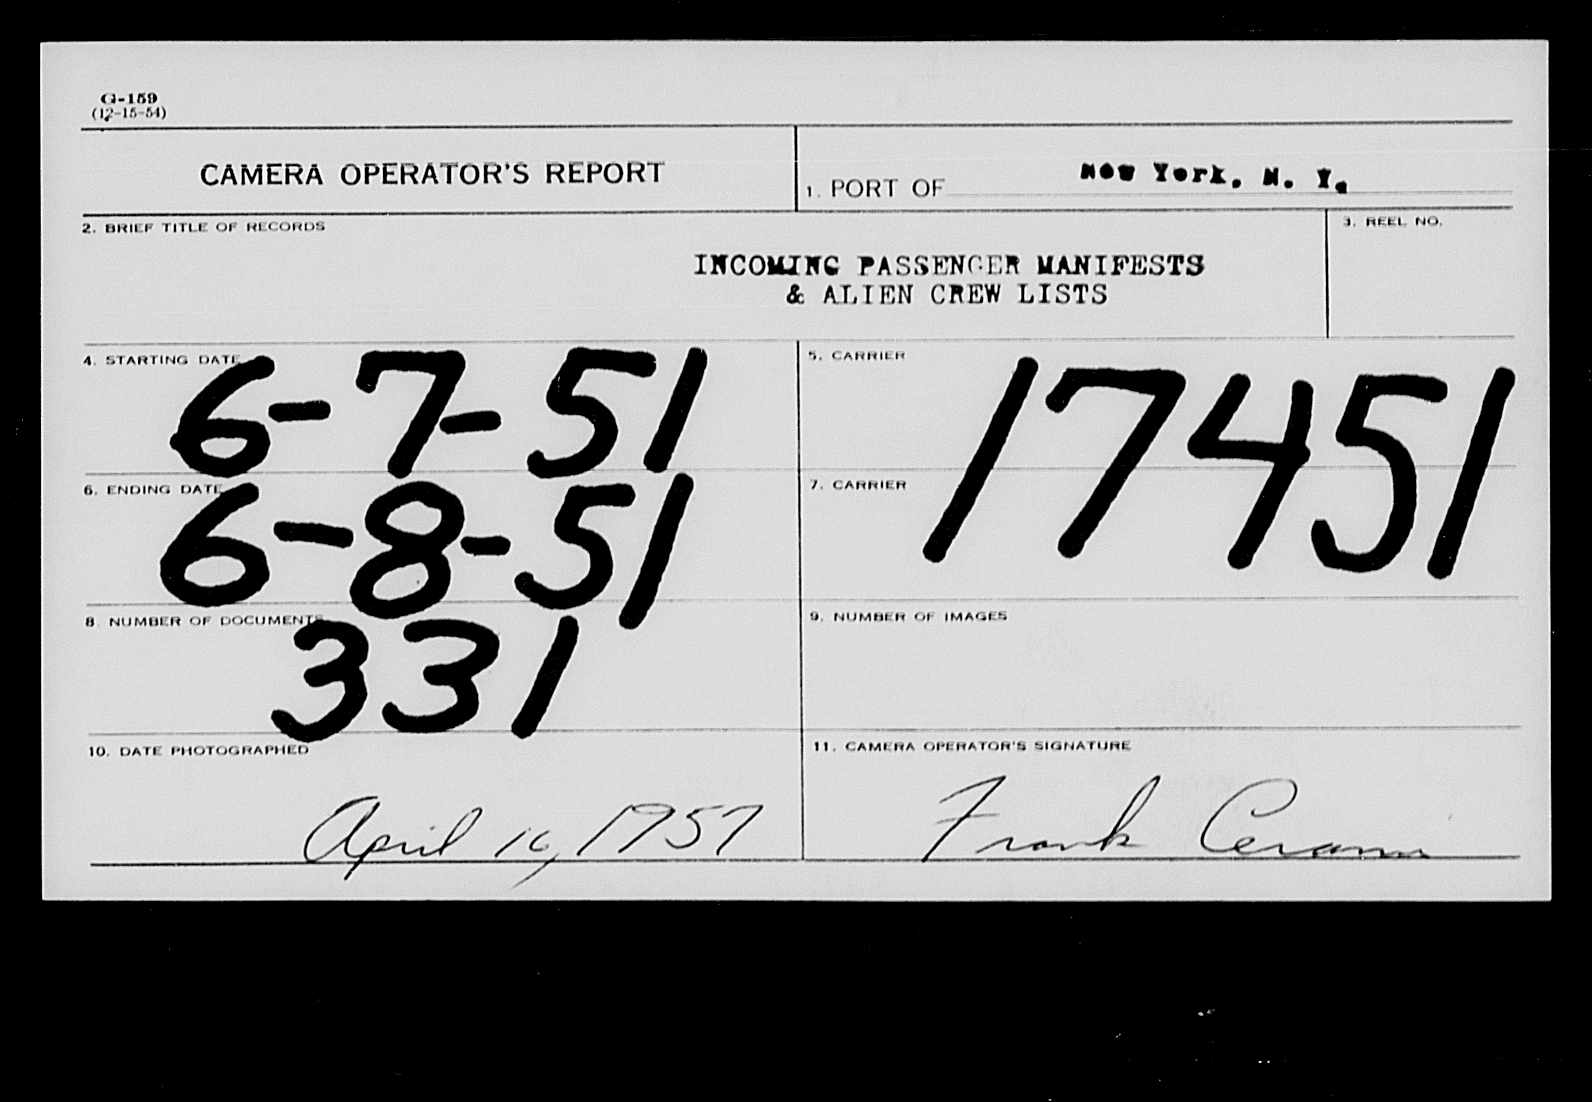 G-159
(12-15-54)
CAMERA OPERATOR'S REPORT
1. PORT OF New York, N. Y.
2. BRIEF TITLE OF RECORDS
3. REEL NO.
INCOMING PASSENGER MANIFESTS
& ALIEN CREW LISTS
4. STARTING DATE
6-7-51
5. CARRIER
17451
6. ENDING DATE
6-8-51
7. CARRIER
8. NUMBER OF DOCUMENTS
331
9. NUMBER OF IMAGES
10. DATE PHOTOGRAPHED
April 16, 1957
11. CAMERA OPERATOR'S SIGNATURE
Frank